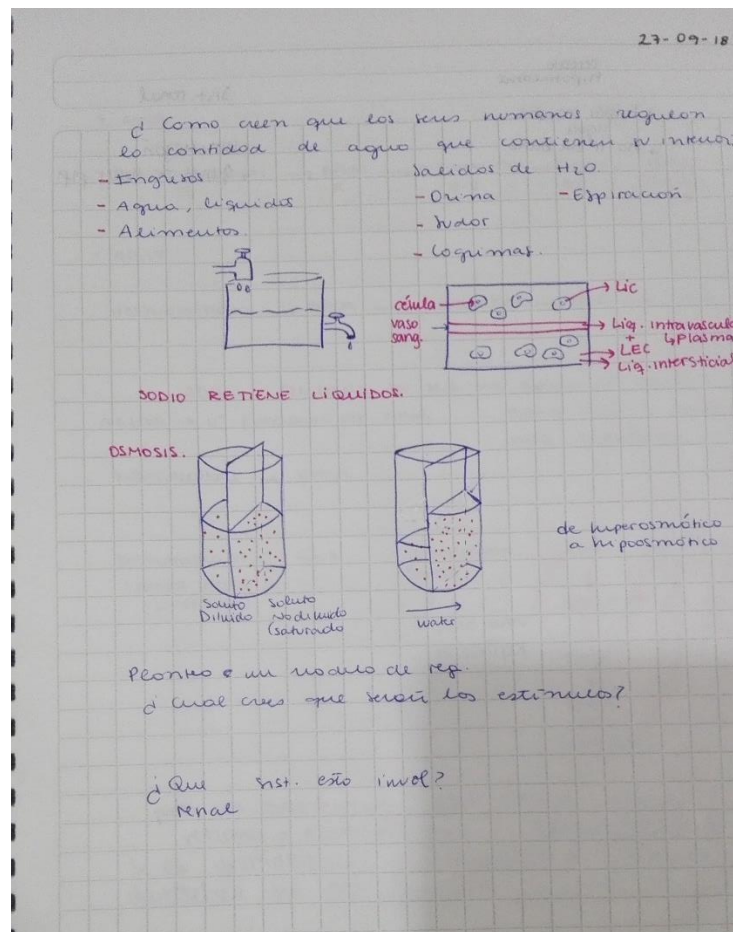 27-09-18
¿ Como creen que los seres humanos regulan
la cantidad de agua que contienen su interior
- Ingresos
- Agua, liquidos
- Alimentos.
Salidas de H2O.
- Orina - Espiración
- Sudor
- Lagrimas.
célula
vaso
sang.
LIC
Liq. intravascula
+ ↳Plasma
LEC
Liq. intersticial
SODIO RETIENE LÍQUIDOS.
OSMOSIS.
de hiperosmótico
a hipoosmótico
Soluto
Diluido
Soluto
No diluido
(saturado
water
Plantee un modelo de reg.
¿ Cual crees que serán los estímulos?
¿Que sist. esta invol?
renal